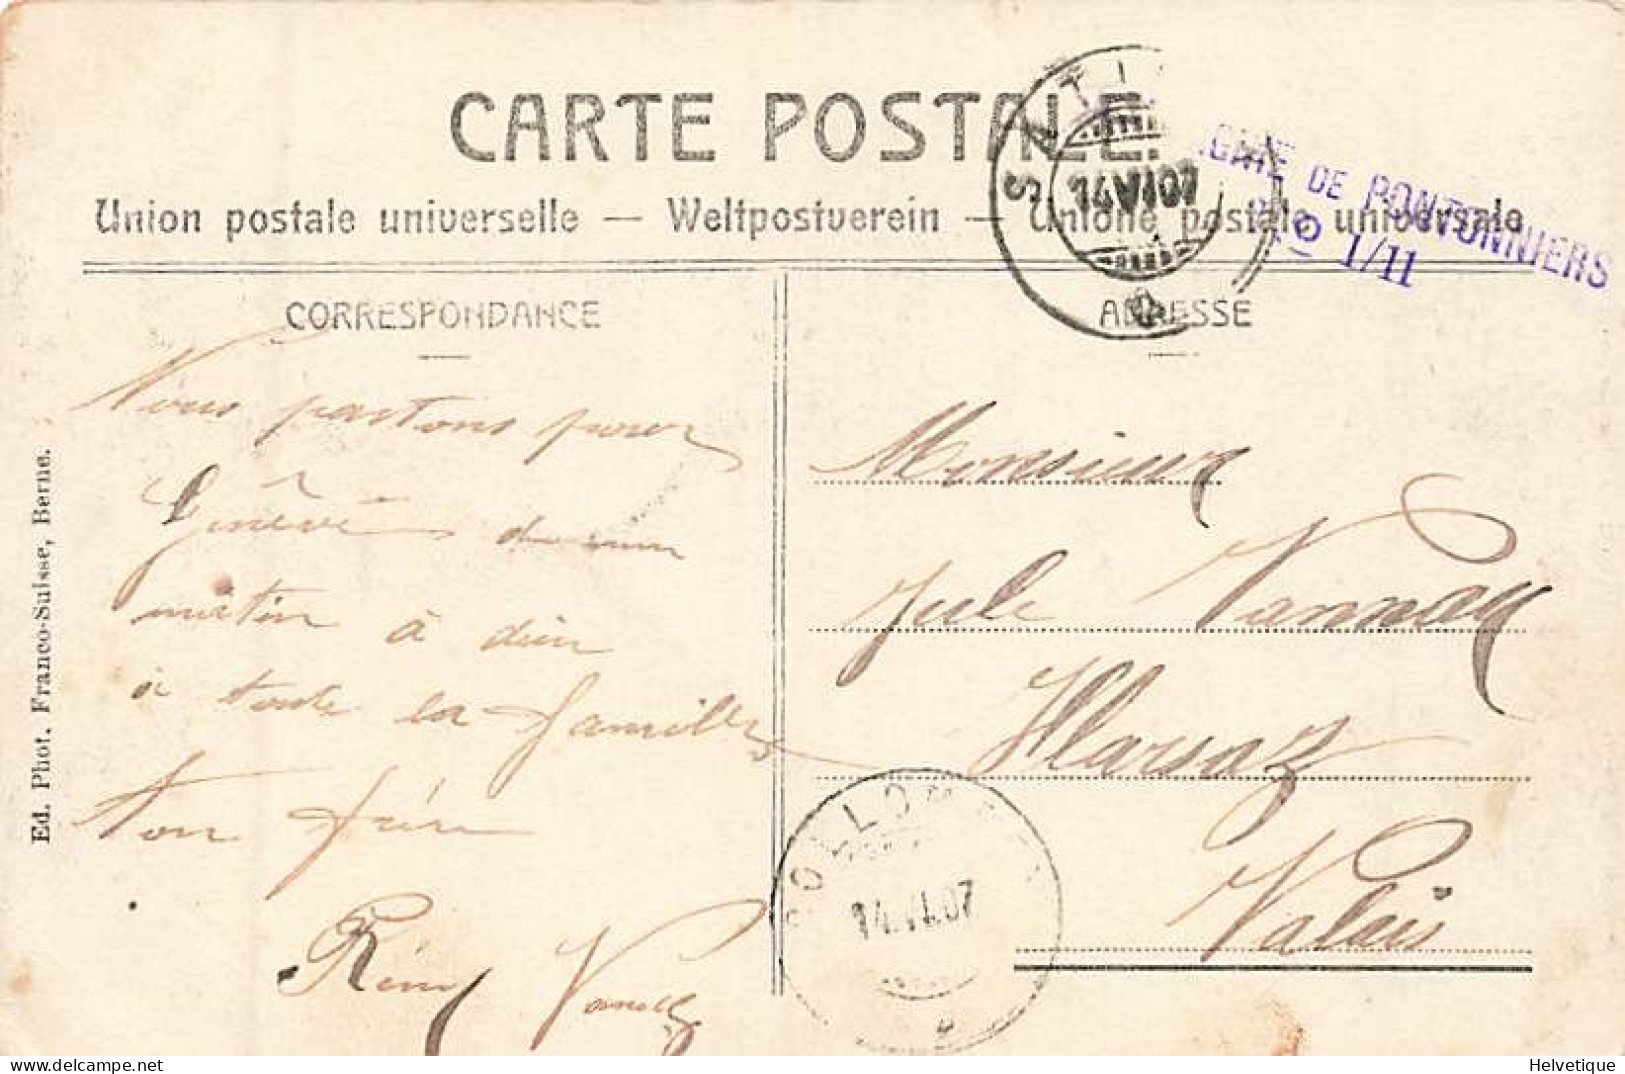 CARTE POSTALE.
Union postale universelle — Weltpostverein — Unione postale universale
14 VI 07
DE PONTONNIERS
1/11
CORRESPONDANCE
ADRESSE
Nous partons pour
Genève
matin à dieu
à toute la famille
ton frère
Rémy
Monsieur
Jule Vannay
Illarsaz
Valais
COLLOMBEY
14.VI.07
Ed. Phot. Franco-Suisse, Berne.
Helvetique